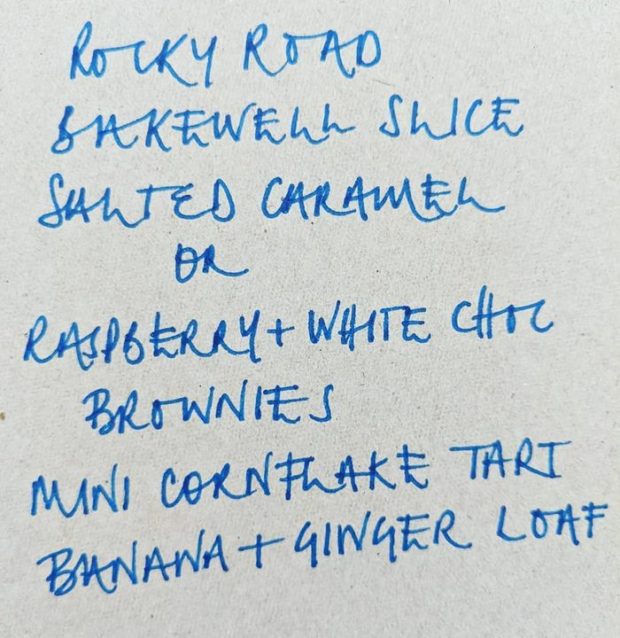 ROCKY ROAD
BAKEWELL SLICE
SALTED CARAMEL
OR
RASPBERRY + WHITE CHOC
BROWNIES
MINI CORNFLAKE TART
BANANA + GINGER LOAF